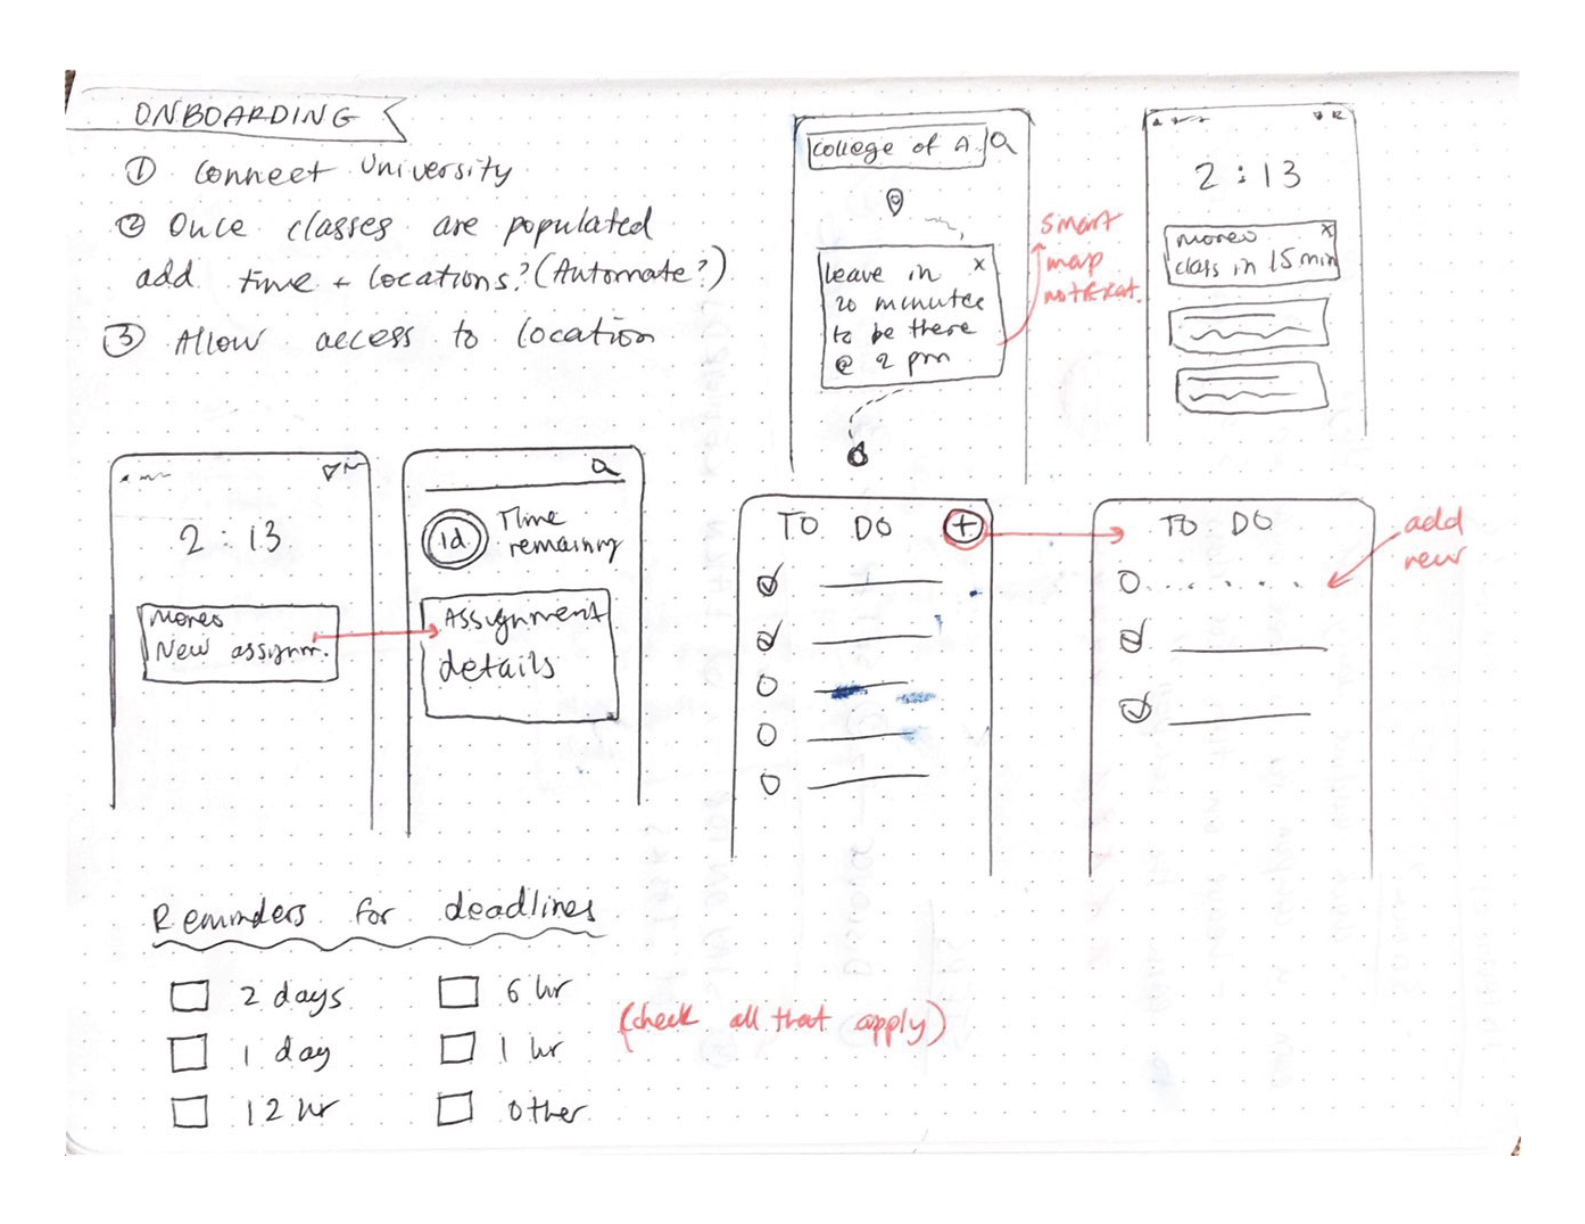 ONBOARDING
① Connect University
② Once classes are populated
add time + locations? (Automate?)
③ Allow access to location
College of A
Leave in x
20 minutes
to be there
@ 2 pm
smart
map
notificat.
2:13
moreo x
class in 15 min
2:13
moreo
New assignm.
1d
Time
remaining
Assignment
details
TO DO +
TO DO
add
new
Reminders for deadlines
2 days
6 hr
1 day
1 hr
12 hr
other
(check all that apply)